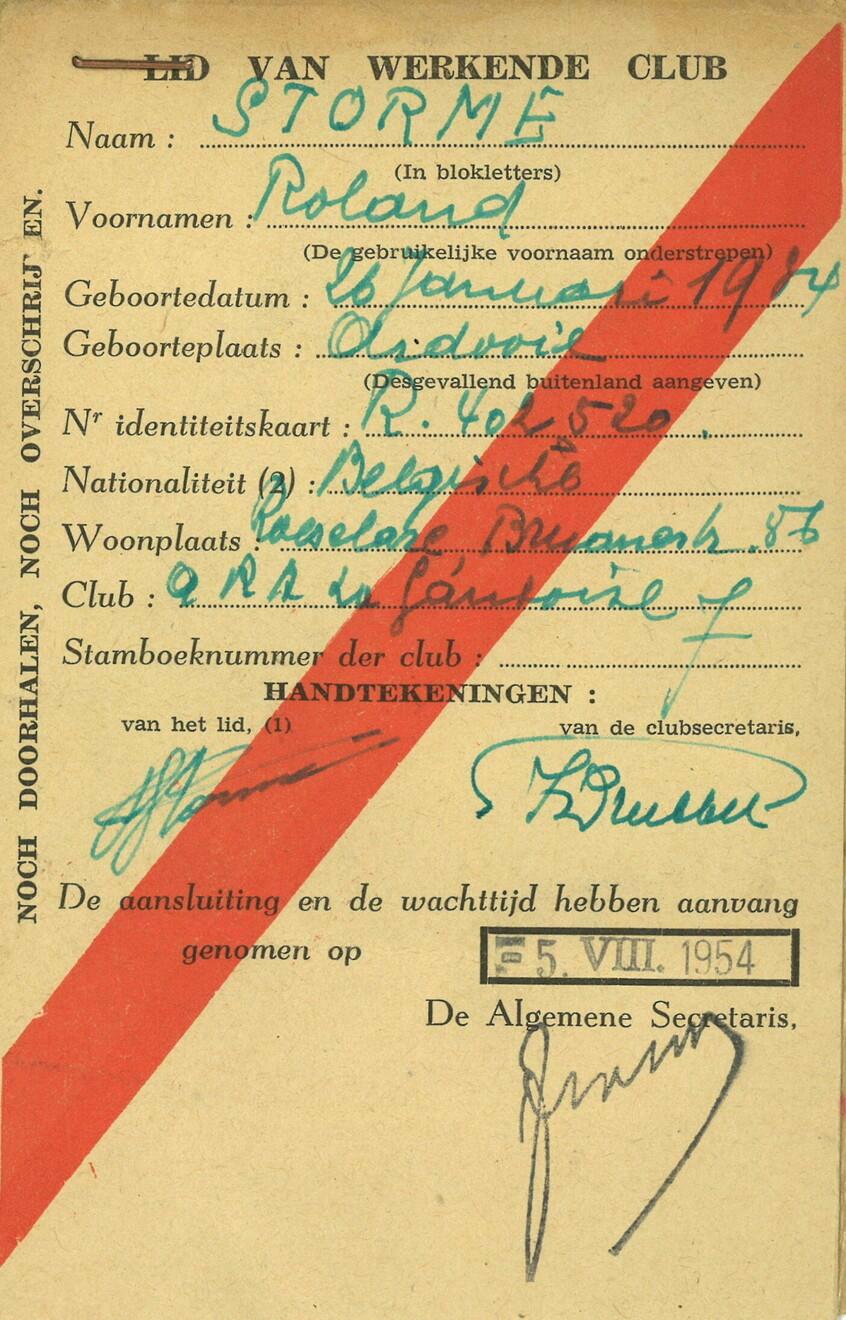 LID VAN WERKENDE CLUB
Naam : STORME
(In blokletters)
Voornamen : Roland
(De gebruikelijke voornaam onderstrepen)
Geboortedatum : 26 Januari 1934
Geboorteplaats : Ardooie
(Desgevallend buitenland aangeven)
Nr identiteitskaart : R. 402520.
Nationaliteit (2) : Belgische
Woonplaats : Roeselare 86
Club : A R A La Gantoise 7
Stamboeknummer der club :
HANDTEKENINGEN :
van het lid, (1) van de clubsecretaris,
De aansluiting en de wachttijd hebben aanvang
genomen op = 5. VIII. 1954
De Algemene Secretaris,
NOCH DOORHALEN, NOCH OVERSCHRIJ EN.